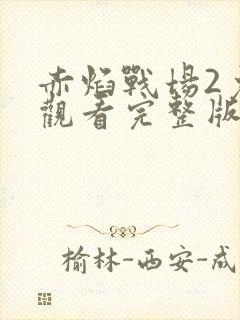 赤焰戰場2
觀看完整版
榆林-西安-成